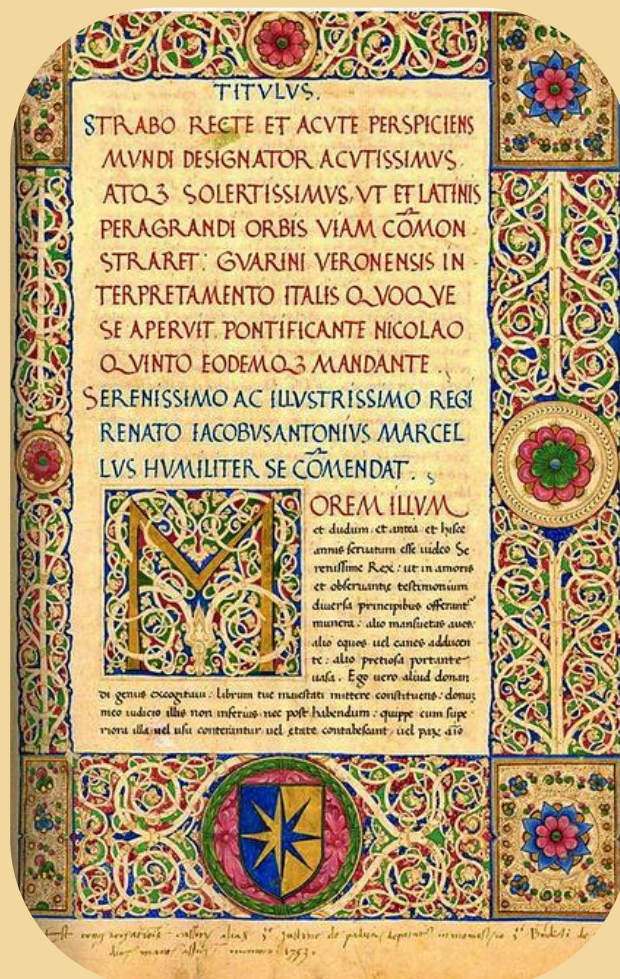 TITVLVS.
STRABO RECTE ET ACVTE PERSPICIENS
MVNDI DESIGNATOR ACVTISSIMVS
ATQꝫ SOLERTISSIMVS, VT ET LATINIS
PERAGRANDI ORBIS VIAM CŌMON
STRARET: GVARINI VERONENSIS IN-
TERPRETAMENTO ITALIS QVOQVE
SE APERVIT. PONTIFICANTE NICOLAO
QVINTO EODEMQꝫ MANDANTE.
SERENISSIMO AC ILLVSTRISSIMO REGI
RENATO IACOBVSANTONIVS MARCEL
LVS HVMILITER SE CŌMENDAT.
MOREM ILLVM
et dudum: et antea et hisce
annis seruatum esse uideo Se
renissime Rex: ut in amoris
et obseruantię testimonium
diuersa principibus offerant
munera: alio mansuetas aues:
alio equos uel canes adducen
te: alio pretiosa portante
uasa. Ego uero aliud donan
di genus excogitaui: librum tuę maiestati mittere constituens: donum
meo iudicio illis non inferius: nec post habendum: quippe cum supe
riora illa uel usu conterantur: uel ętate contabescant: uel
de padua
1753.